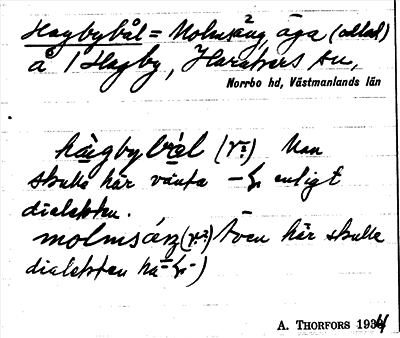 Hagbybål = Molmsäng, äga (odlad)
å 1 Hagby, Harakers sn,
Norrbo hd, Västmanlands län
hàgbybòl (r?) Man
skulle här vänta — enligt
dialekten.
molmsäŋ (r?) Även här skulle
dialekten ha )
A. THORFORS 1934